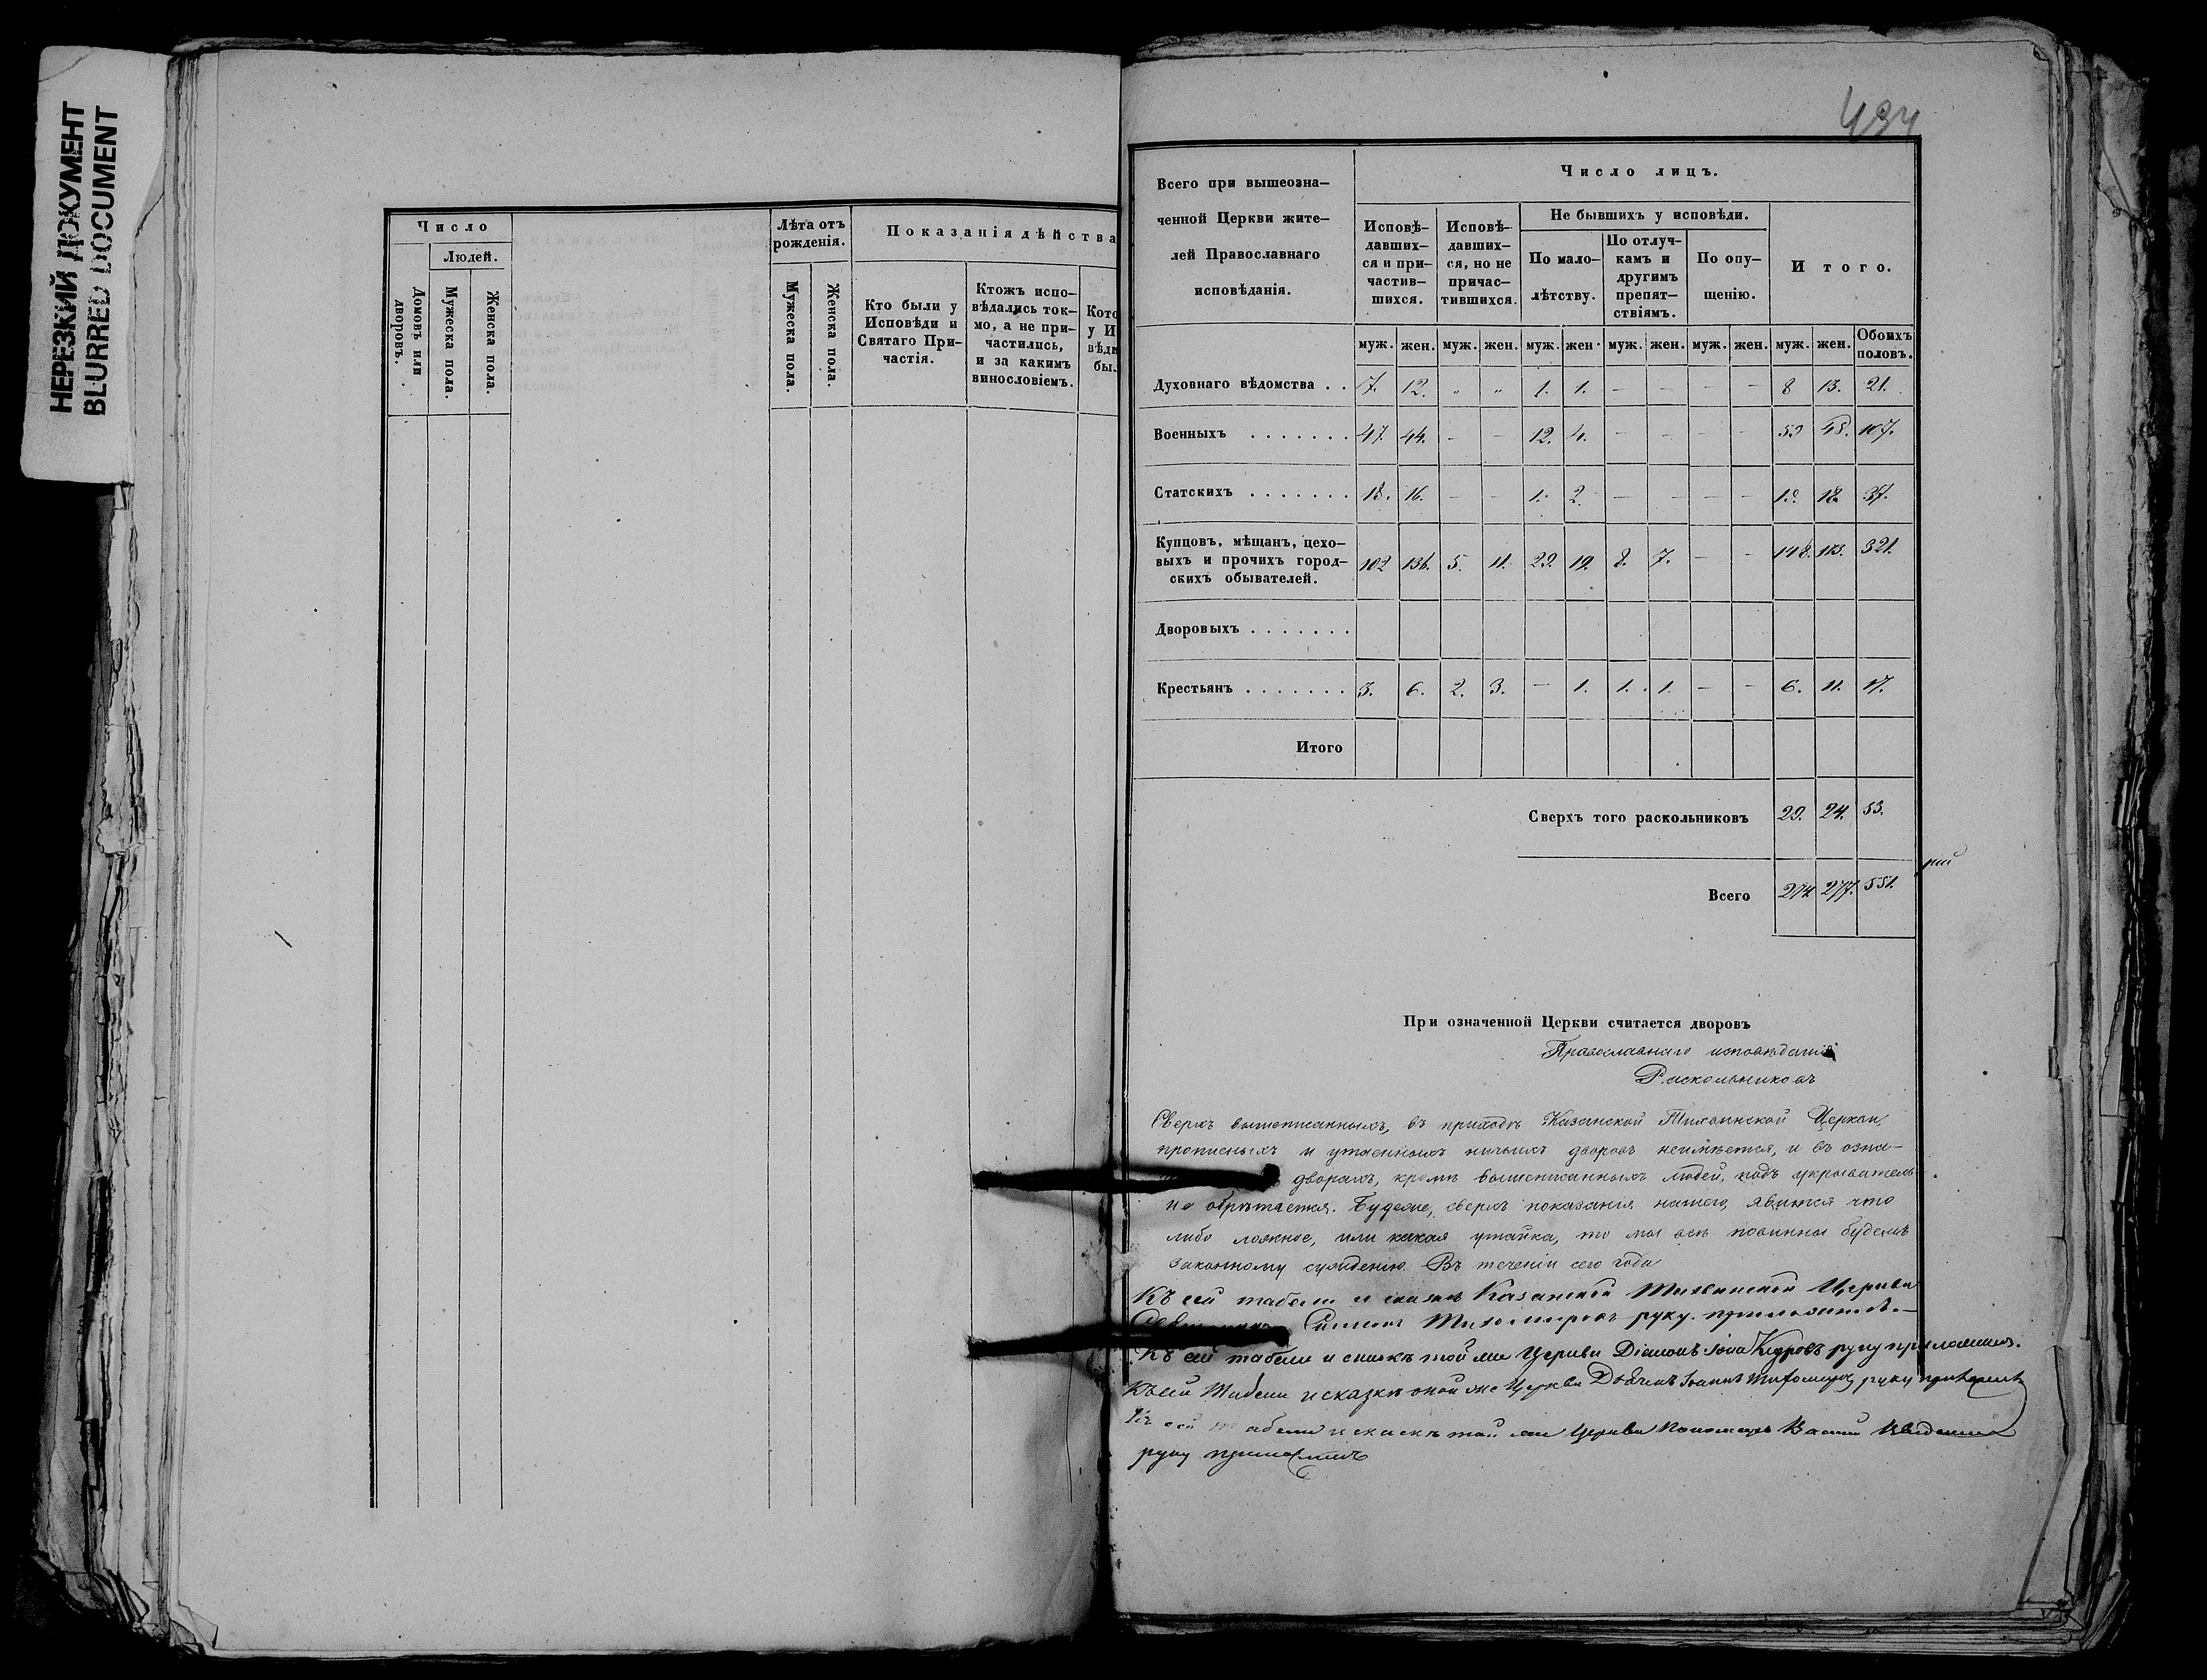 НЕРЕЗКИЙ ДОКУМЕНТ
BLURRED DOCUMENT
Число
Людей.
Домовъ или дворовъ.
Мужеска пола.
Женска пола.
Лѣта отъ рожденія.
Мужеска пола.
Женска пола.
Показанія дѣйства
Кто были у
Исповѣди и
Святаго При-
частія.
Ктожъ испо-
вѣдались ток-
мо, а не при-
частились,
и за какимъ
винословіемъ.
Кото
у И
вѣди
бы.
434
Всего при вышеозна-
ченной Церкви жите-
лей Православнаго
исповѣданія.
Число лицъ.
Исповѣ-
давших-
ся и при-
частив-
шихся.
Исповѣ-
давших-
ся, но не
причас-
тившихся.
Не бывшихъ у исповѣди.
По мало-
лѣтству.
По отлуч-
камъ и
другимъ
препят-
ствіямъ.
По опу-
щенію.
Итого.
муж. жен. муж. жен. муж. жен. муж. жен. муж. жен. муж. жен. Обоихъ половъ.
Духовнаго вѣдомства . . 7. 12. „ „ 1. 1. – – – – 8 13. 21.
Военныхъ . . . . . . . 47. 44. – – 12. 4. – – – – 59 48. 107.
Статскихъ . . . . . . . 18. 16. – – 1. 2. – – – – 19. 18. 37.
Купцовъ, мѣщанъ, цехо-
выхъ и прочихъ город-
скихъ обывателей. 102 136. 5. 11. 29. 19. 8. 7. – – 148. 173. 321.
Дворовыхъ . . . . . . .
Крестьянъ . . . . . . . 3. 6. 2. 3. – 1. 1. 1. – – 6. 11. 17.
Итого
Сверхъ того раскольниковъ 29. 24. 53.
Всего 274 277. 551.
При означенной Церкви считается дворовъ
Православнаго исповѣданія
Раскольниковъ
Сверхъ вышеписанныхъ, въ приходѣ Казанской Тихвинской Церкви,
прописныхъ и утаенныхъ ничьихъ дворовъ неимѣется, и въ озна-
дворахъ, кромѣ вышеписанныхъ людей, подъ укрыватель
не обрѣтается. Будеже, сверхъ показанія нашего, явится что
либо ложное, или какая утайка, то мы всѣ повинны будемъ
законному сужденію. Въ теченіи сего года
Къ сей табели и сказкѣ Казанской Тихвинской Церкви
Тихомировъ руку приложилъ.
Къ сей табели и сказкѣ той же Церкви Діаконъ Іона Кудровъ руку приложилъ.
Къ сей табели и сказкѣ оной же Церкви Дьячекъ Іоаннъ Тихомировъ руку приложилъ
Къ сей табели и сказкѣ той же Церкви Пономарь Василій Введенскій
руку приложилъ